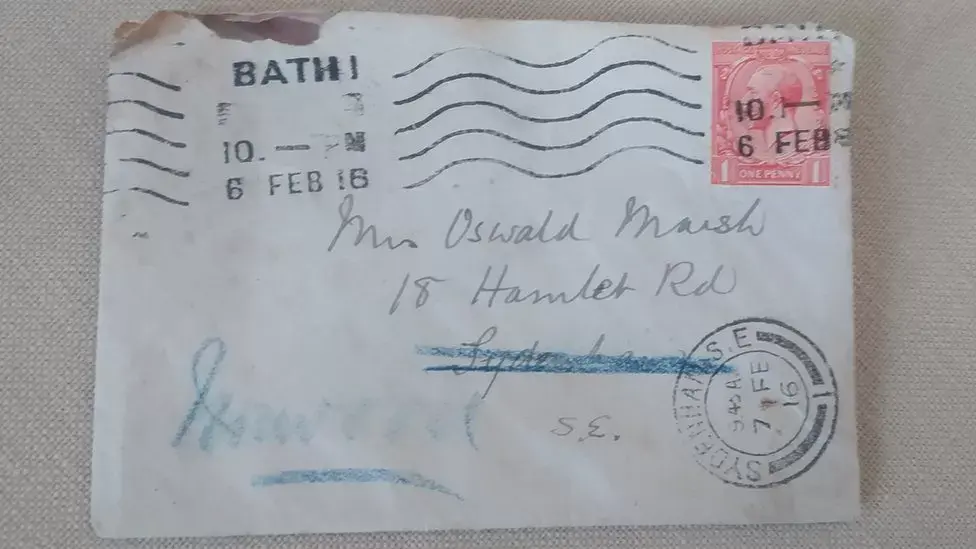 BATH 1
10. — PM
6 FEB 16
10. 1 — PM
6 FEB
ONE PENNY
1 1
Mrs Oswald Marsh
18 Hamlet Rd
Sydenham
S.E.
Norwood
SYDENHAM S.E
9 45 A
7 FE
16
1